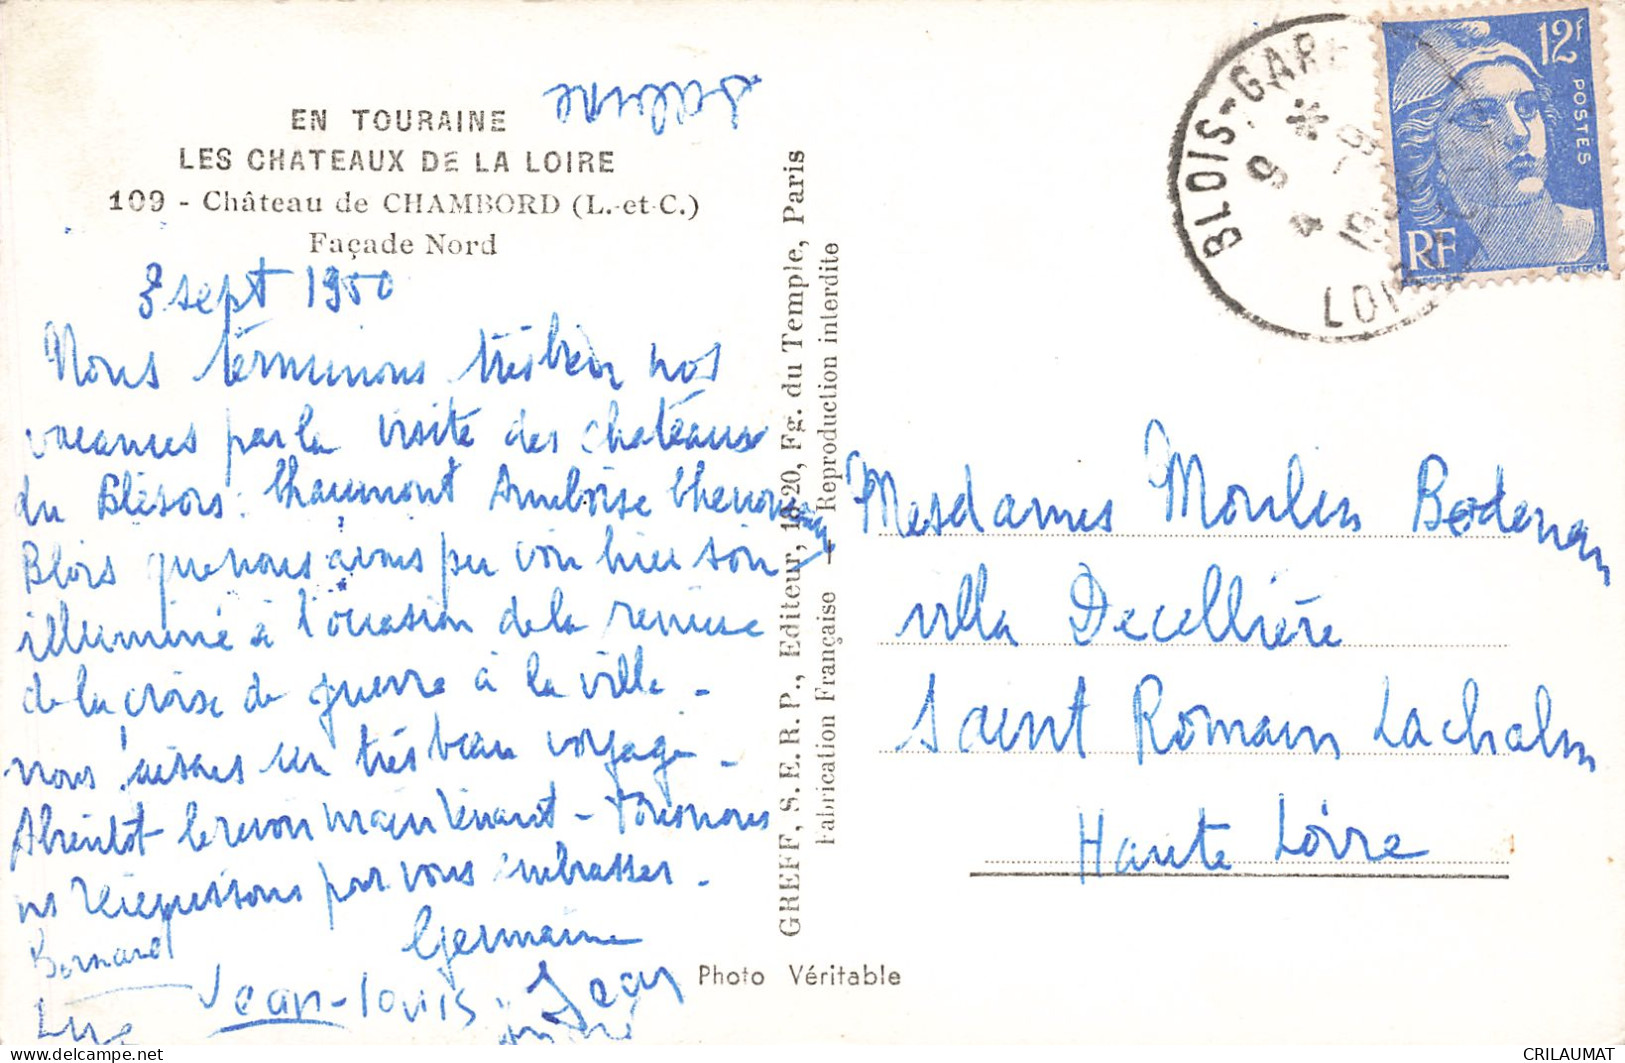 EN TOURAINE
LES CHATEAUX DE LA LOIRE
109 - Château de CHAMBORD (L.-et-C.)
Façade Nord
3 sept 1950
Nous terminons très bien nos
vacances par la visite des châteaux
du Blésois : Chaumont Amboise Chenonceaux
Blois que nous avons pu voir hier soir
illuminé à l'occasion de la remise
de la croise de guerre à la ville -
nous faisons un très beau voyage -
A bientôt le revoir maintenant -
ns réjouissons pour vous embrasser -
Germaine
Bernard
Jean-Louis
Jean
Luce
GREFF, S. E. R. P., Editeur, 18-20, Fg. du Temple, Paris
Fabrication Française - Reproduction interdite
Photo Véritable
BLOIS-GARE
LOIR
12f
POSTES
RF
Mesdames Moulin Bodenan
villa Decellière
Saint Romain Lachalm
Haute Loire
CRILAUMAT